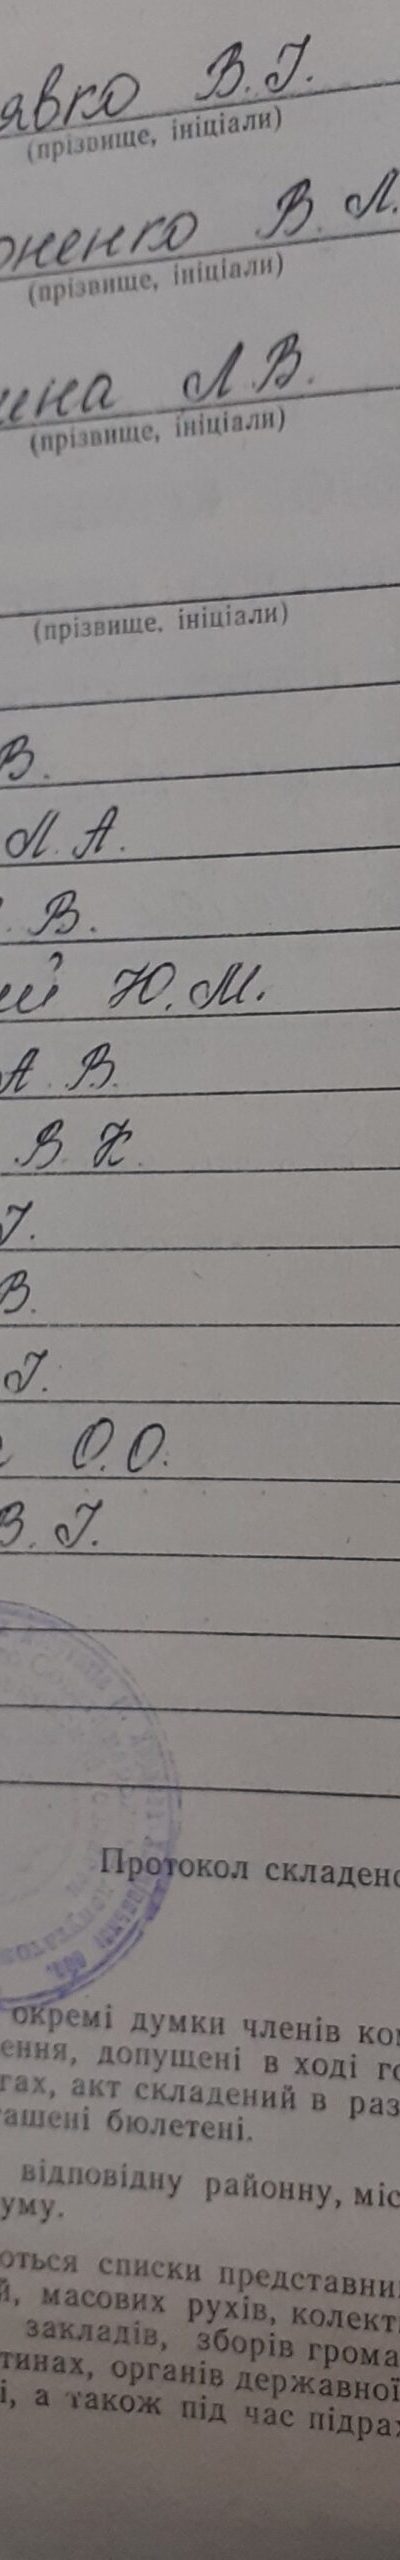 явко В.І.
(прізвище, ініціали)
оненко В.Л.
(прізвище, ініціали)
ина Л.В.
(прізвище, ініціали)
(прізвище, ініціали)
В.
Л.А.
В.
ий Ю.М.
А.В.
В.К.
І.
В.
І.
О.О.
В.І.
Протокол складено
окремі думки членів ком
ення, допущені в ході го
гах, акт складений в раз
ташені бюлетені.
відповідну районну, міс
уму.
оться списки представни
й, масових рухів, колект
закладів, зборів грома
тинах, органів державної
і, а також під час підрах